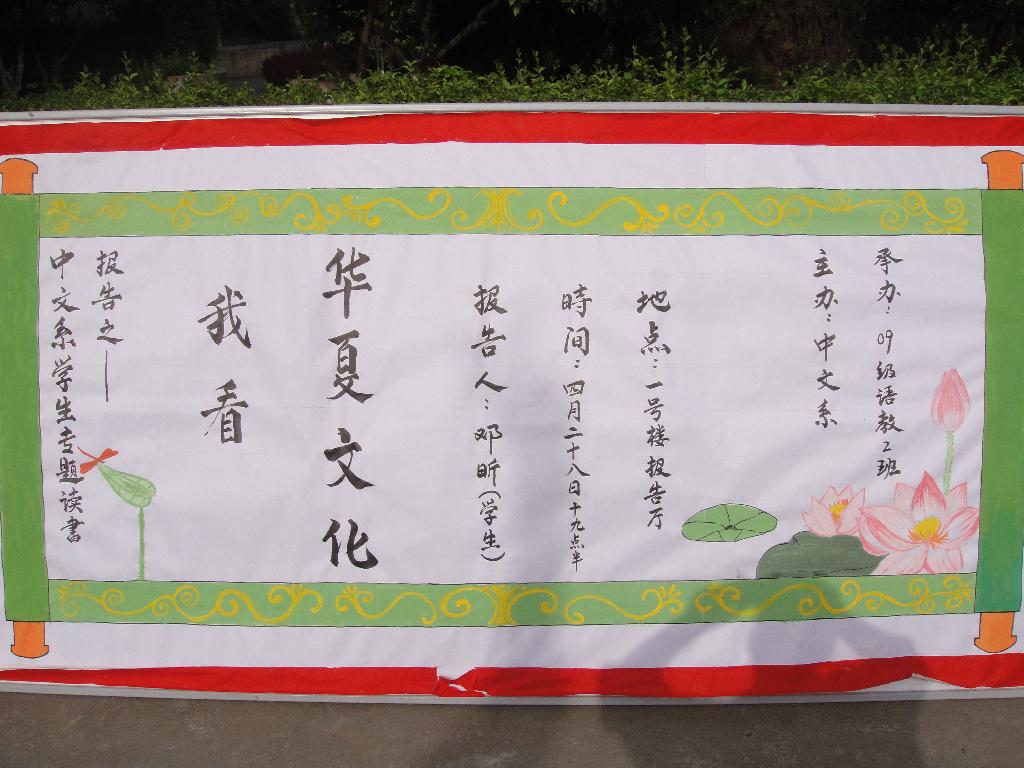 中文系学生专题读书
报告之一
我看
华夏文化
报告人：邓昕（学生）
時间：四月二十八日十九点半
地点：一号楼报告厅
主办：中文系
承办：09级语教2班